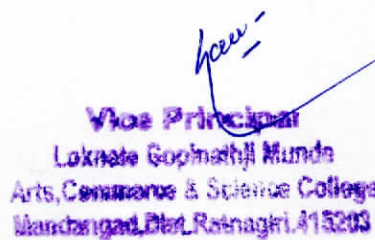 Vice Principal
Loknete Gopinathji Munde
Arts,Commerce & Science College
Mandangad,Dist,Ratnagiri.415203